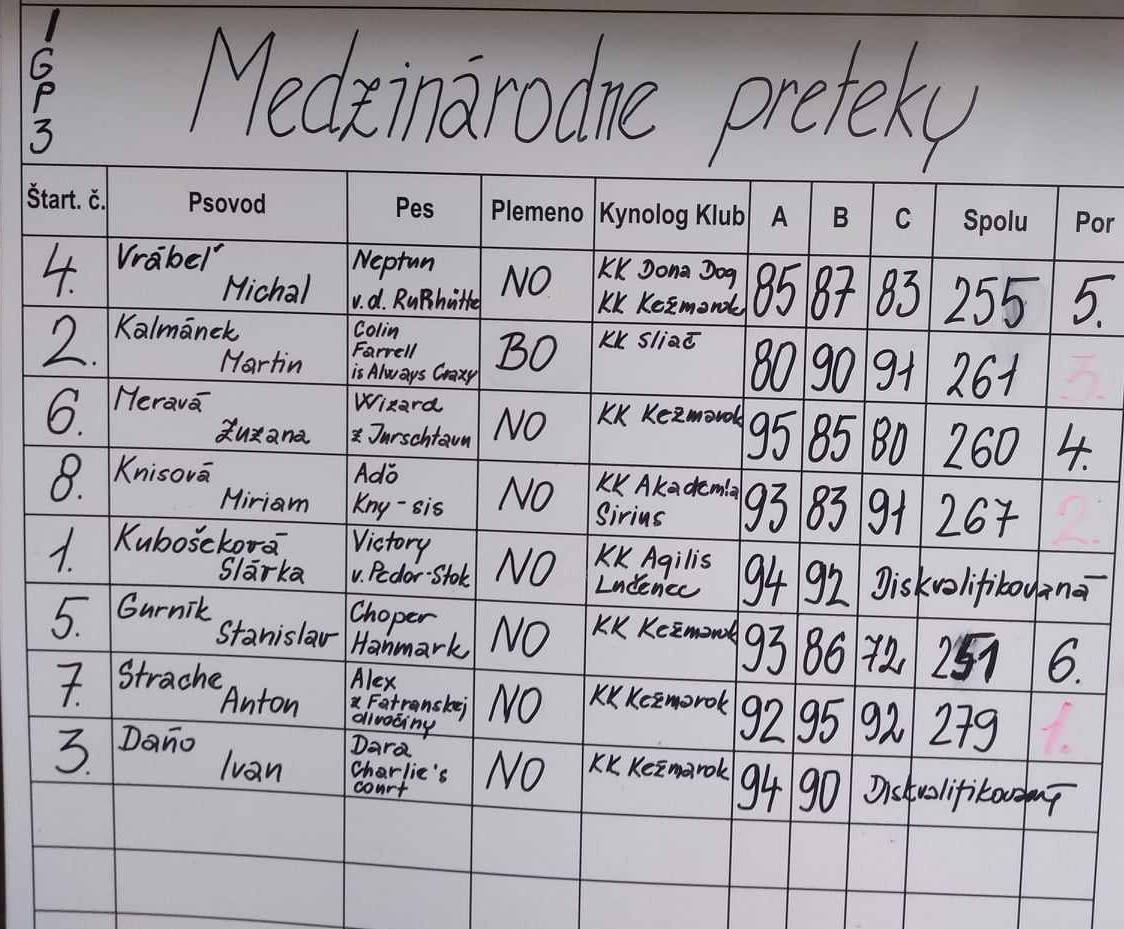 IGP3
Medzinárodne preteky
Štart. č. Psovod Pes Plemeno Kynolog Klub A B C Spolu Por
4. Vrábeľ Michal Neptun v.d. Rußhütte NO KK Dona Dog KK Kežmarok 85 87 83 255 5.
2. Kalmánek Martin Colin Farrell is Always Crazy BO KK Sliač 80 90 91 261 3.
6. Meravá Zuzana Wizard z Jurschtaun NO KK Kežmarok 95 85 80 260 4.
8. Knisová Miriam Adö Kny-sis NO KK Akadémia Sirius 93 83 91 267 2.
1. Kubošeková Slárka Victory v. Pedor-Stok NO KK Agilis Lučenec 94 92 Diskvalifikovaná
5. Gurník Stanislav Choper Hanmark NO KK Kežmarok 93 86 72 251 6.
7. Strache Anton Alex z Fatranskej divočiny NO KK Kežmarok 92 95 92 279 1.
3. Daňo Ivan Dara Charlie's court NO KK Kežmarok 94 90 Diskvalifikovaný